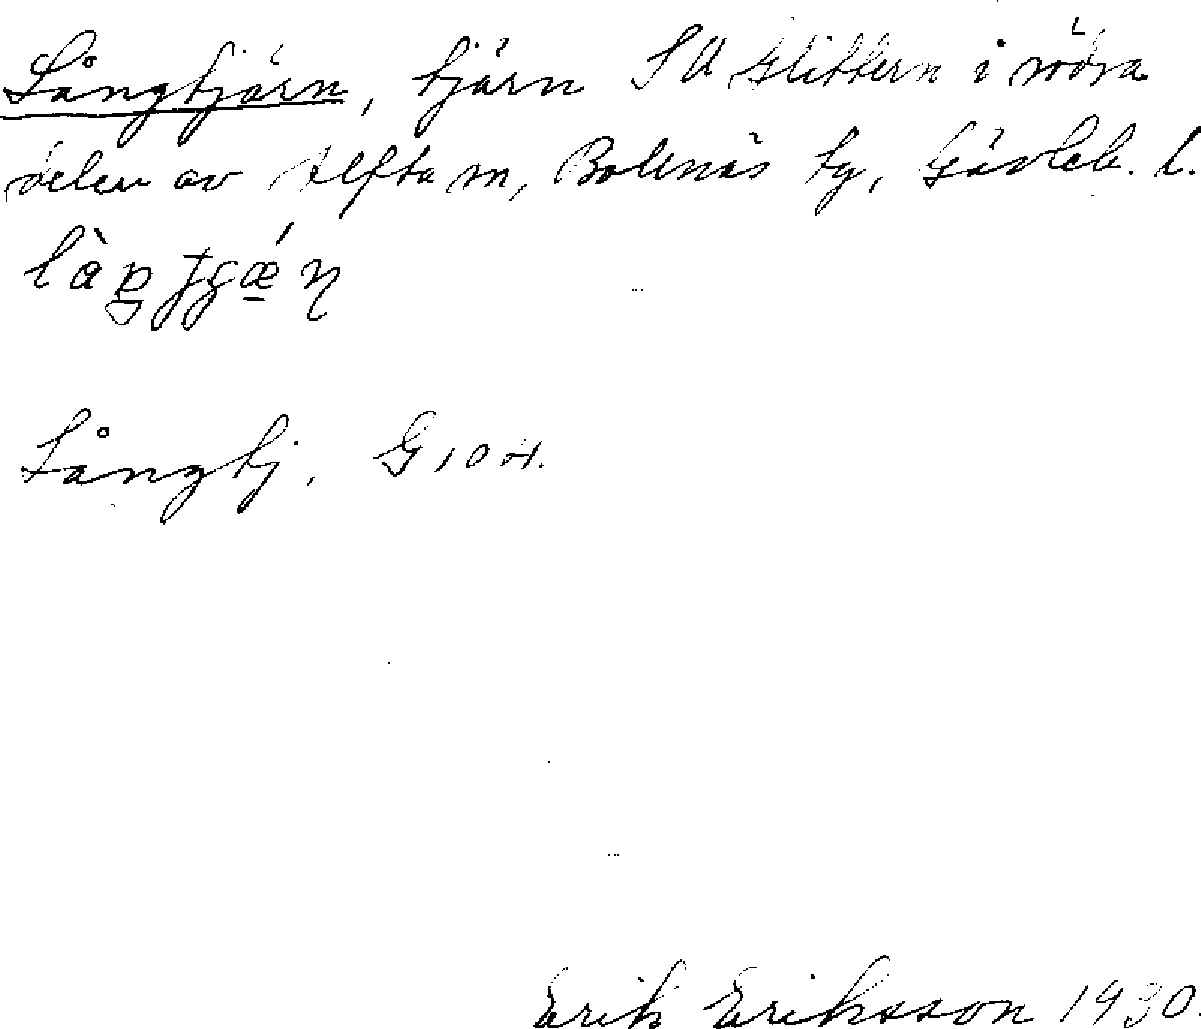 Långtjärn, tjärn SU Glittern i södra
delen av Alfta sn, Bollnäs tg, Gävleb. l.
Långtj. G 10 H.
Erik Eriksson 1930.